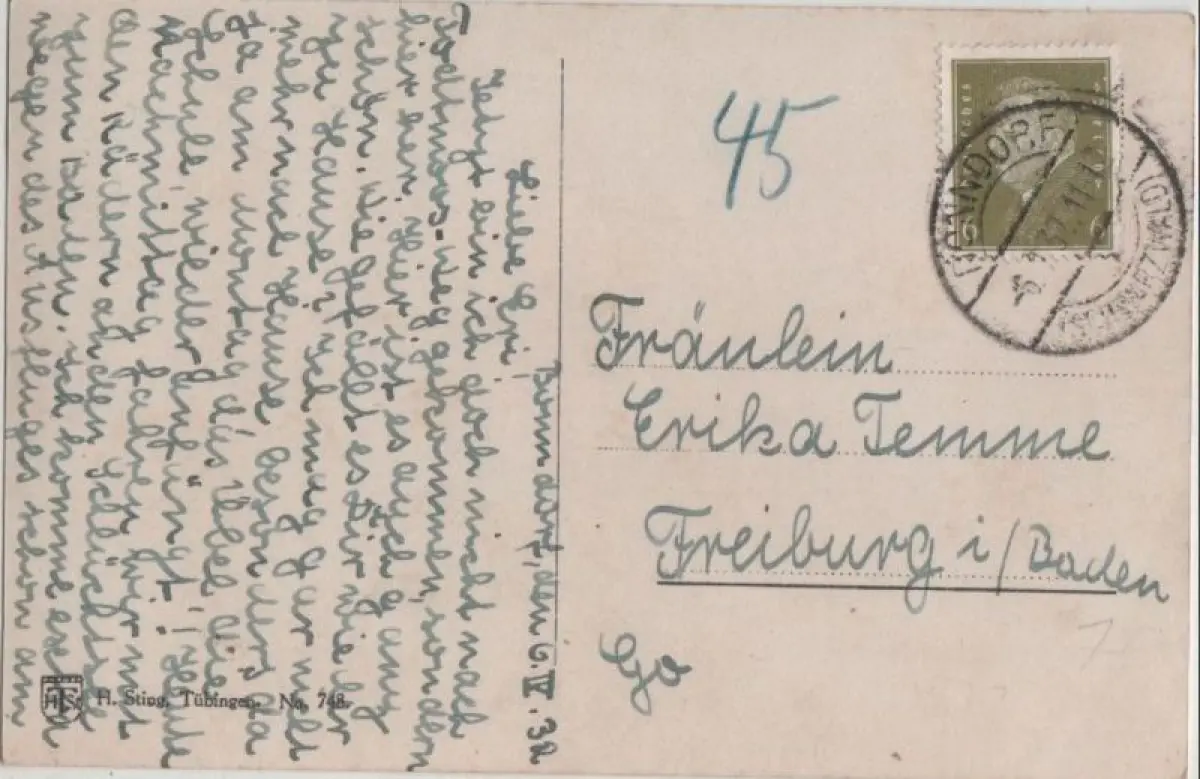 Bonndorf, den 6. IV. 32
Liebe Eri!
Jetzt bin ich doch nicht nach
Todtmoos-Weg gekommen, sondern
hier her. Hier ist es auch ganz
schön. Wie gefällt es Dir wieder
zu Hause? Ich mag gar nicht
mehr nach Hause, besonders da
ja am Montag das Übel, die
Schule, wieder anfängt.! Heute
Nachmittag fahren wir mit
den Rädern an den Schluchsee
zum baden. Ich komme
wegen des Ausfluges schon am
H. Sting, Tübingen. No. 748.
45
BONNDORF
(SCHWARZWALD)
6
Fräulein
Erika Temme
Freiburg i/Baden